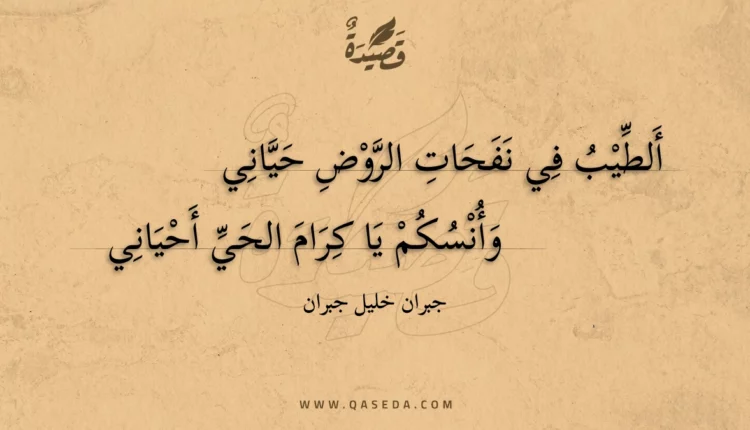 قَصِيْدَةٌ
أَلطِّيْبُ فِي نَفَحَاتِ الرَّوْضِ حَيَّانِي
وَأُنْسُكُمْ يَا كِرَامَ الحَيِّ أَحْيَانِي
جبران خليل جبران
WWW.QASEDA.COM